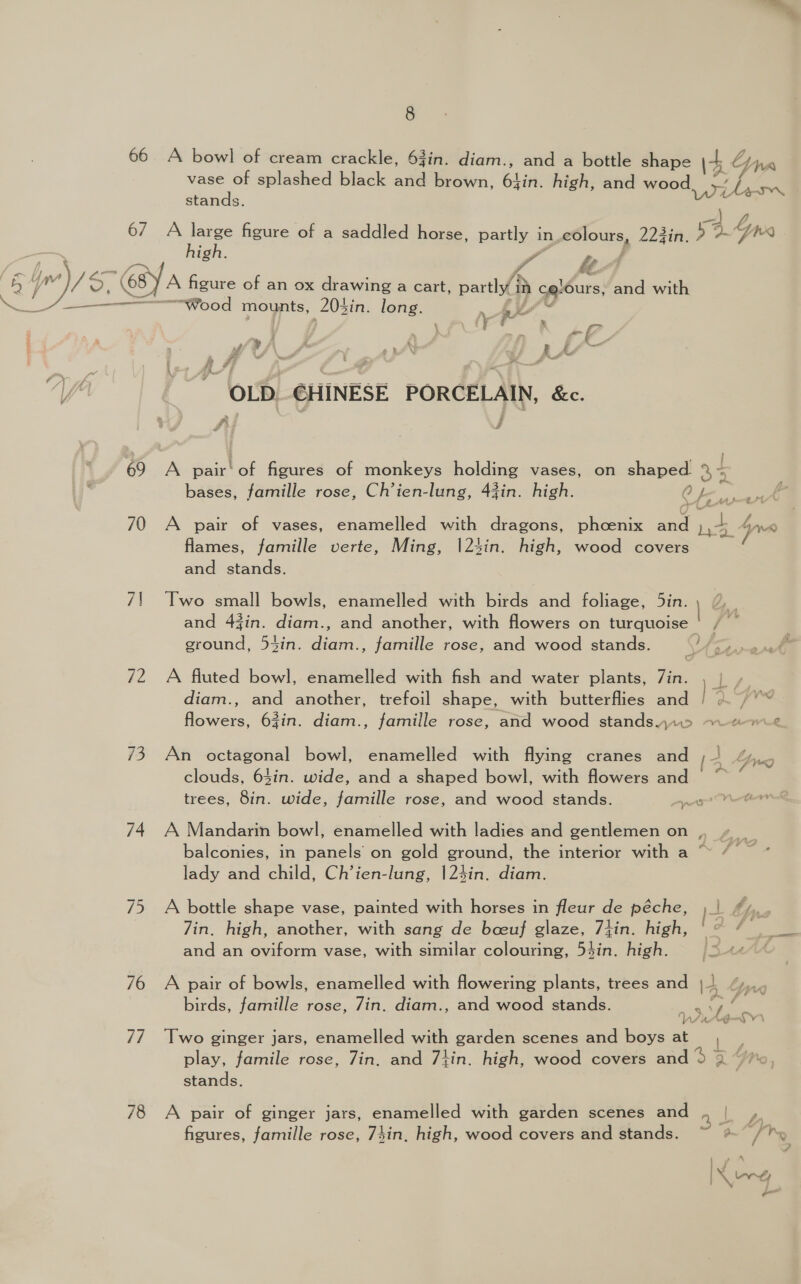 8
66 A bowl of cream crackle, 6¾in. diam., and a bottle shape
vase of splashed black and brown, 6½in. high, and wood
stands.
67 A large figure of a saddled horse, partly in colours, 22¾in.
high.
68 A figure of an ox drawing a cart, partly in colours, and with
wood mounts, 20½in. long.
OLD CHINESE PORCELAIN, &c.
69 A pair of figures of monkeys holding vases, on shaped
bases, famille rose, Ch'ien-lung, 4¾in. high.
70 A pair of vases, enamelled with dragons, phœnix and
flames, famille verte, Ming, 12½in. high, wood covers
and stands.
71 Two small bowls, enamelled with birds and foliage, 5in.
and 4¾in. diam., and another, with flowers on turquoise
ground, 5½in. diam., famille rose, and wood stands.
72 A fluted bowl, enamelled with fish and water plants, 7in.
diam., and another, trefoil shape, with butterflies and
flowers, 6¾in. diam., famille rose, and wood stands.
73 An octagonal bowl, enamelled with flying cranes and
clouds, 6½in. wide, and a shaped bowl, with flowers and
trees, 8in. wide, famille rose, and wood stands.
74 A Mandarin bowl, enamelled with ladies and gentlemen on
balconies, in panels on gold ground, the interior with a
lady and child, Ch'ien-lung, 12½in. diam.
75 A bottle shape vase, painted with horses in fleur de pêche,
7in. high, another, with sang de bœuf glaze, 7¼in. high,
and an oviform vase, with similar colouring, 5½in. high.
76 A pair of bowls, enamelled with flowering plants, trees and
birds, famille rose, 7in. diam., and wood stands.
77 Two ginger jars, enamelled with garden scenes and boys at
play, famile rose, 7in. and 7¼in. high, wood covers and
stands.
78 A pair of ginger jars, enamelled with garden scenes and
figures, famille rose, 7½in. high, wood covers and stands.
King